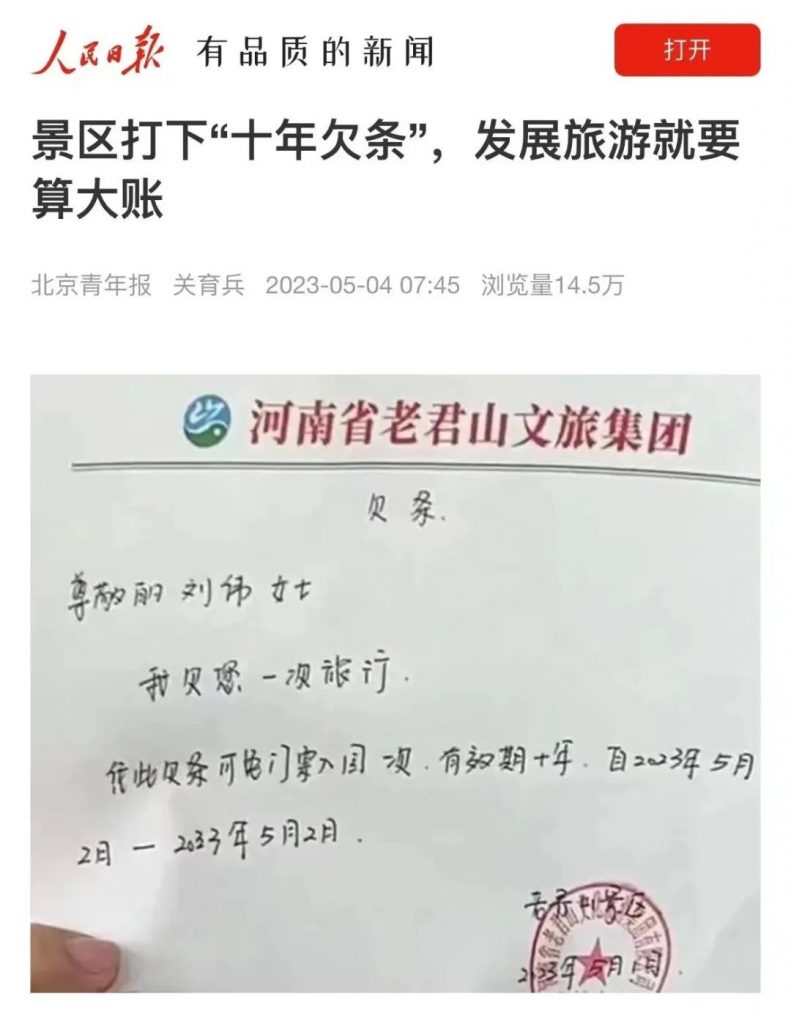 人民日报 有品质的新闻
打开
景区打下“十年欠条”，发展旅游就要
算大账
北京青年报 关育兵 2023-05-04 07:45 浏览量14.5万
河南省老君山文旅集团
欠条.
尊敬的 刘伟 女士
我欠您一次旅行.
凭此欠条可免门票入园 次.有效期十年.自2023年5月
2日—2033年5月2日.
老君山景区
2023年5月 日.